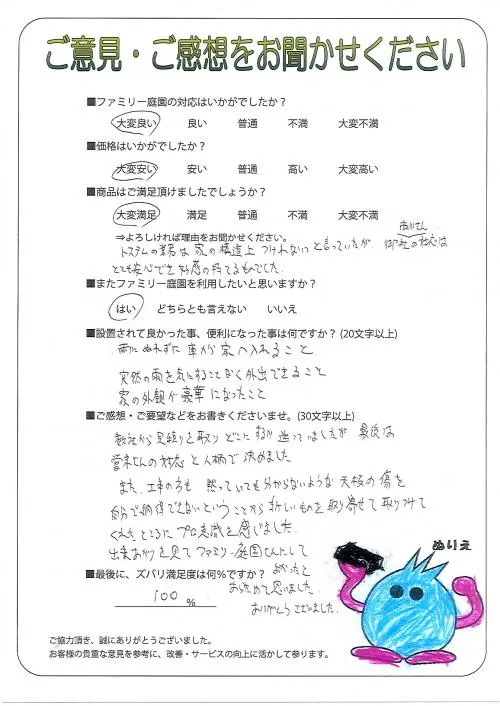 ご意見・ご感想をお聞かせください
■ファミリー庭園の対応はいかがでしたか？
大変良い 良い 普通 不満 大変不満
■価格はいかがでしたか？
大変安い 安い 普通 高い 大変高い
■商品はご満足頂けましたでしょうか？
大変満足 満足 普通 不満 大変不満
⇒よろしければ理由をお聞かせください。
トステムの業者は家の構造上つけれないと言っていたが 御社の対応は
とても安心でき好感の持てるものでした。
■またファミリー庭園を利用したいと思いますか？
はい どちらとも言えない いいえ
■設置されて良かった事、便利になった事は何ですか？(20文字以上)
雨にぬれずに車から家へ入れること
突然の雨を気にすることなく外出できること
家の外観が豪華になったこと
■ご感想・ご要望などをお書きくださいませ。(30文字以上)
数社から見積りを取りどこにするか迷っていましたが 最後は
営業さんの対応と人柄で決めました
また、工事の方も 黙っていても分からないような 天板の傷を
自分で納得できないということから新しいものを取り寄せて取りつけて
くれたところにプロ意識を感じました。
出来あがりを見てファミリー庭園さんにして
よかったと
■最後に、ズバリ満足度は何％ですか？
あらためて思いました。
100 ％
ありがとうございました。
ぬりえ
ご協力頂き、誠にありがとうございました。
お客様の貴重な意見を参考に、改善・サービスの向上に活かして参ります。